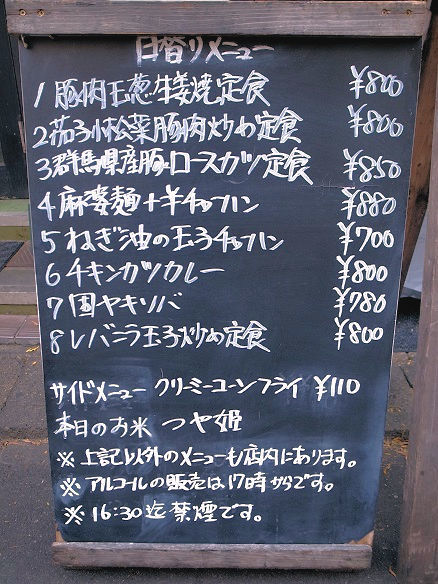 日替りメニュー
1 豚肉玉葱生姜焼定食 ¥800
2 茄子小松菜豚肉炒め定食 ¥800
3 群馬県産豚ロースカツ定食 ¥850
4 麻婆麺+半チャーハン ¥880
5 ねぎ油の玉子チャーハン ¥700
6 チキンカツカレー ¥800
7 固ヤキソバ ¥780
8 レバニラ玉子炒め定食 ¥800
サイドメニュー クリーミーコーンフライ ¥110
本日のお米 つや姫
※ 上記以外のメニューも店内にあります。
※ アルコールの販売は17時からです。
※ 16:30迄禁煙です。